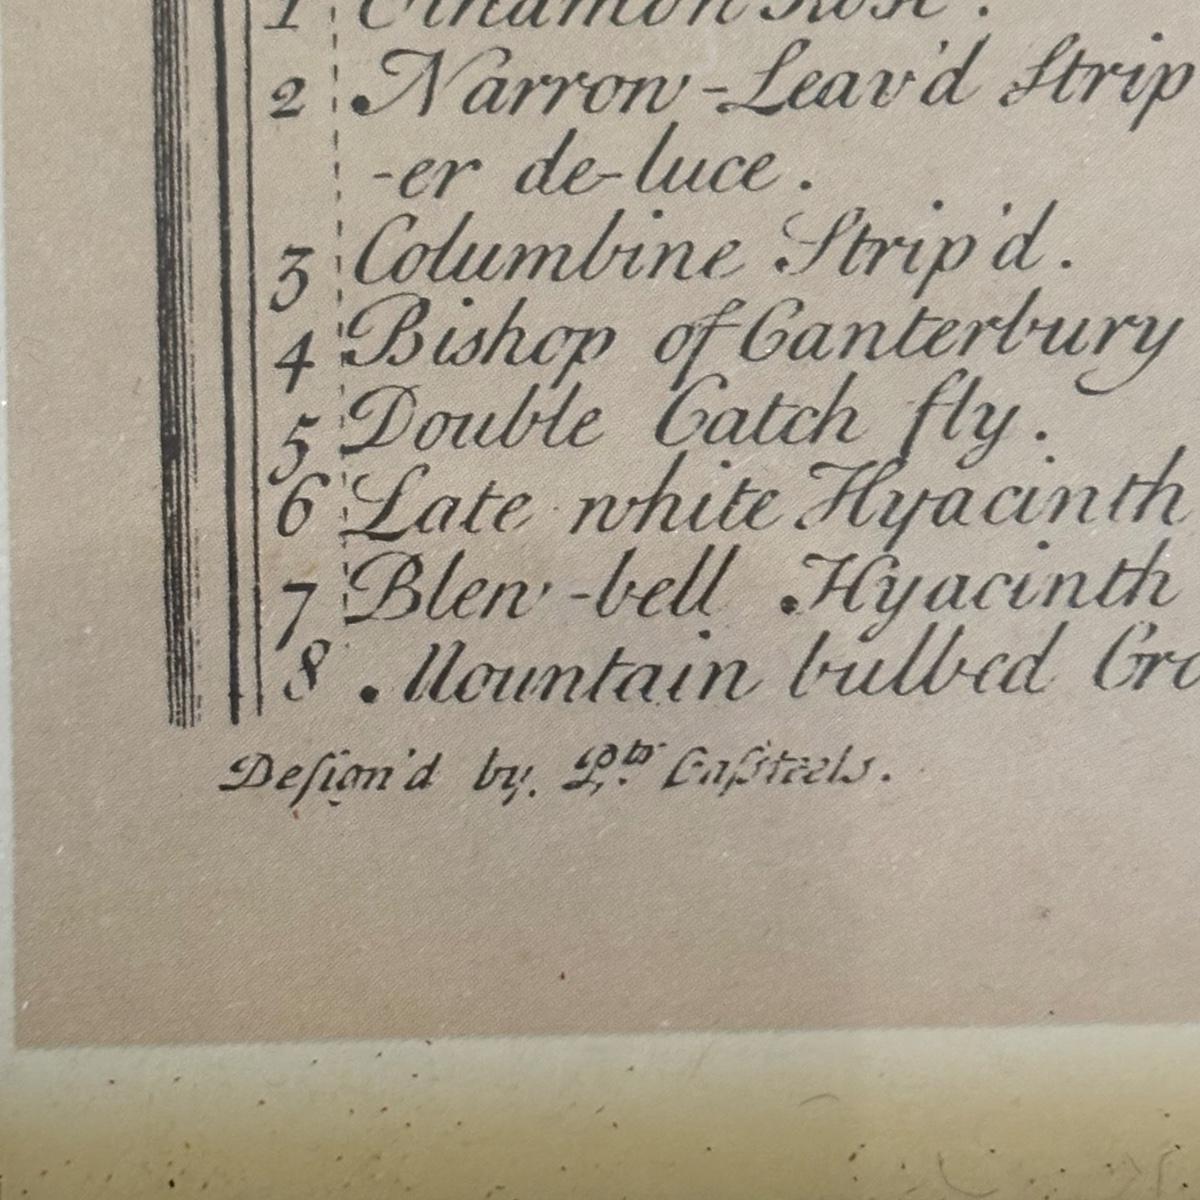 1 Cinamon Rose.
2 Narrow-Leav'd Strip
-er de-luce.
3 Columbine Strip'd.
4 Bishop of Canterbury
5 Double Catch fly.
6 Late white Hyacinth
7 Blew-bell Hyacinth
8 Mountain bulbed Cro
Deſign'd by. Pᵗʳ. Caſteels.